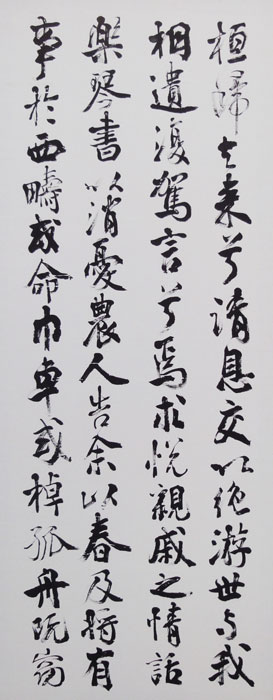 桓歸去來兮請息交以絕游世與我
相遺復駕言兮焉求悅親戚之情話
樂琴書以消憂農人告余以春及將有
事於西疇或命巾車或棹孤舟既窈